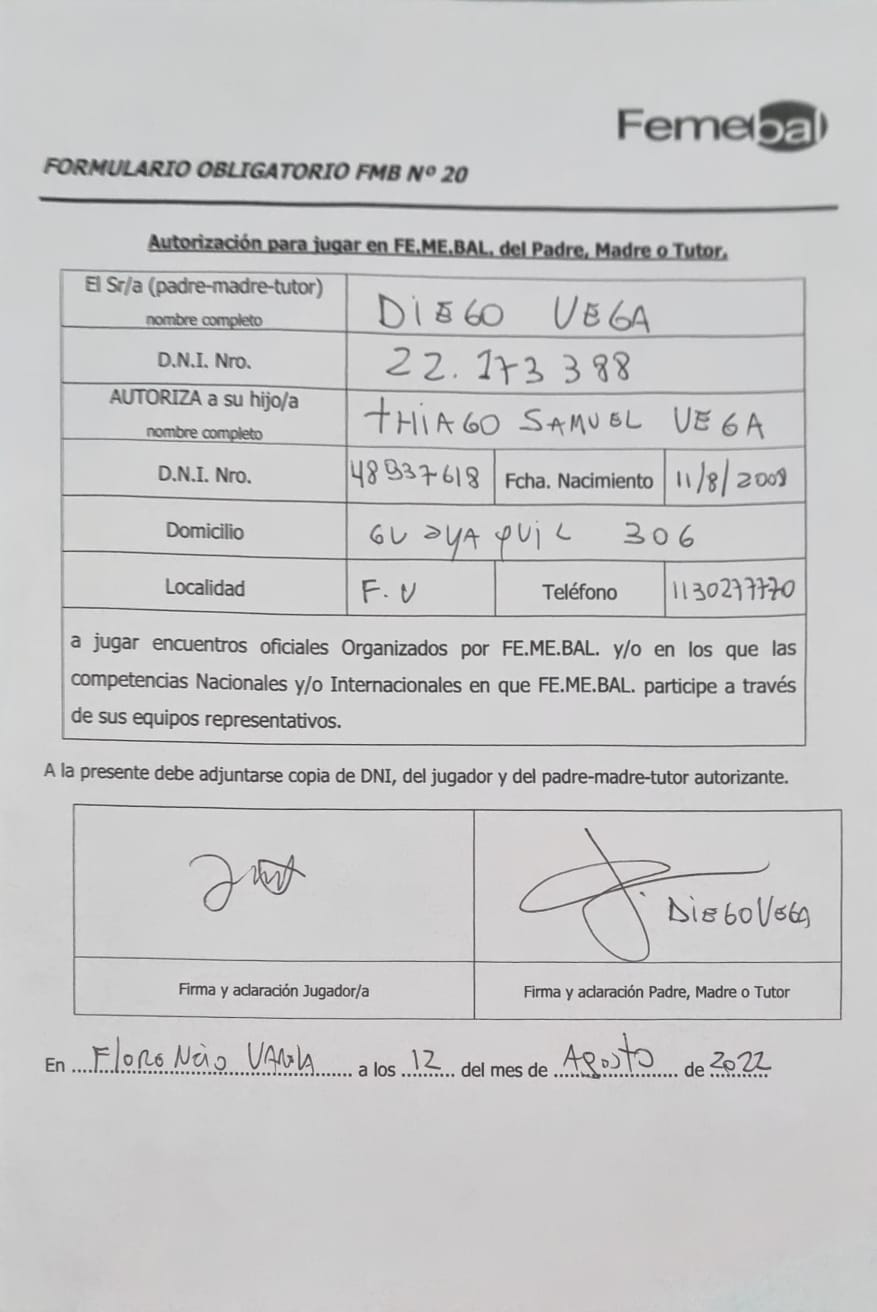 Femebal
FORMULARIO OBLIGATORIO FMB Nº 20
Autorización para jugar en FE.ME.BAL. del Padre, Madre o Tutor.
El Sr/a (padre-madre-tutor) nombre completo DIEGO VEGA
D.N.I. Nro. 22.173388
AUTORIZA a su hijo/a nombre completo THIAGO SAMUEL VEGA
D.N.I. Nro. 48937618 Fcha. Nacimiento 11/8/2008
Domicilio GUAYAQUIL 306
Localidad F.V Teléfono
a jugar encuentros oficiales Organizados por FE.ME.BAL. y/o en los que las
competencias Nacionales y/o Internacionales en que FE.ME.BAL. participe a través
de sus equipos representativos.
A la presente debe adjuntarse copia de DNI, del jugador y del padre-madre-tutor autorizante.
DIEGO VEGA
Firma y aclaración Jugador/a Firma y aclaración Padre, Madre o Tutor
En Florencio VARELA a los 12 del mes de Agosto de 2022